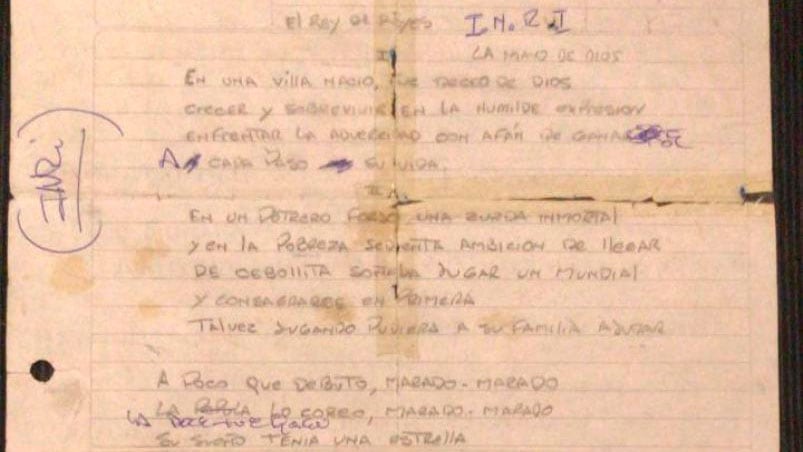 El Rey de Reyes I.N.R.I
LA MANO DE DIOS
I
EN UNA VILLA NACIO, FUE DECEO DE DIOS
CRECER Y SOBREVIVIR EN LA HUMILDE EXPRESION
ENFRENTAR LA ADVERCIDAD CON AFÁN DE GANARSE
A CADA PASO SU VIDA.
INRi
II A
EN UN POTRERO FORJO UNA ZURDA INMORTAL
Y EN LA POBREZA SEDIENTA AMBICION DE LLEGAR
DE CEBOLLITA SOÑABA JUGAR UN MUNDIAL
Y CONSAGRARSE EN PRIMERA
TALVEZ JUGANDO PUDIERA A SU FAMILIA AYUDAR
A POCO QUE DEBUTO, MARADO-MARADO
LA LO COREO, MARADO-MARADO
LA
SU SUEÑO TENIA UNA ESTRELLA